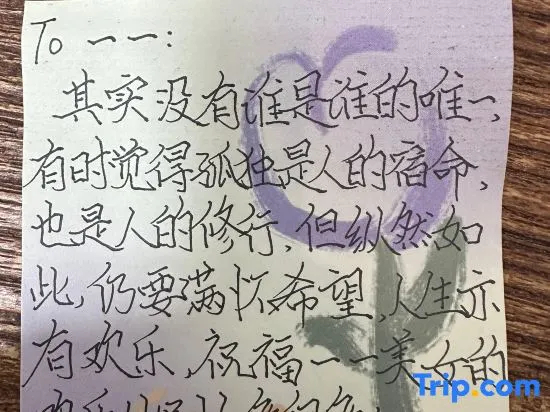 To 一一:
其实没有谁是谁的唯一,
有时觉得孤独是人的宿命,
也是人的修行,但纵然如
此,仍要满怀希望,人生亦
有欢乐,祝福一一美女的
Trip.com